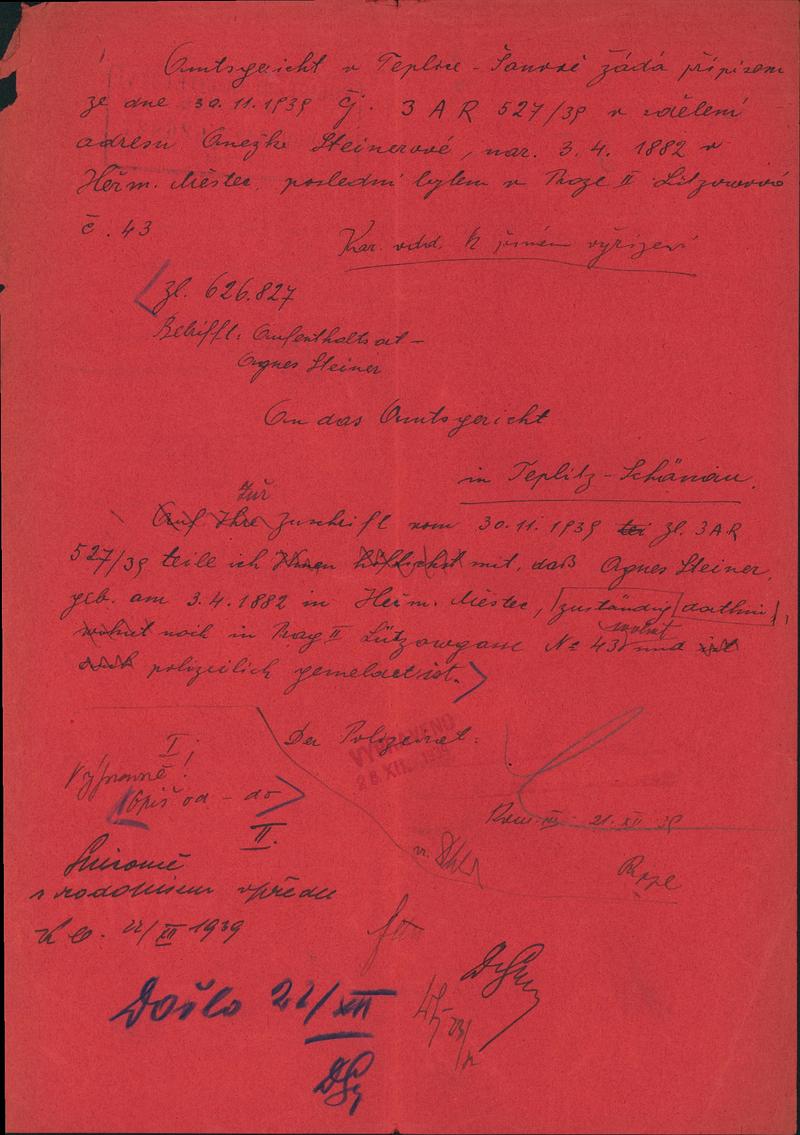 Amtsgericht v Teplice-Šanově žádá přípisem
ze dne 30.11.1939 čj. 3 A R 527/39 o sdělení
adresu Anežky Steinerové, nar. 3.4. 1882 v
Heřm. Městec, poslední bytem v Praze II Lützowově
č. 43
k přímému vyřízení
zl. 626.827
Betrifft: Aufenthaltsort -
Agnes Steiner
An das Amtsgericht
in Teplitz-Schönau.
Zur
Auf Ihre Zuschrift vom 30.11.1939 zl. 3 A R
527/39 teile ich Ihnen höflichst mit, daß Agnes Steiner,
geb. am 3.4.1882 in Heřm. Městec, zuständig dorthin,
wohnt
wohnt noch in Prag II Lützowgasse № 43 und ist
auch polizeilich gemeldet ist.
Der Polizeirat:
VYPRAVENO
I.
Opis od - do
21. XII 39
II.
22/XII 1939
Došlo 22/XII